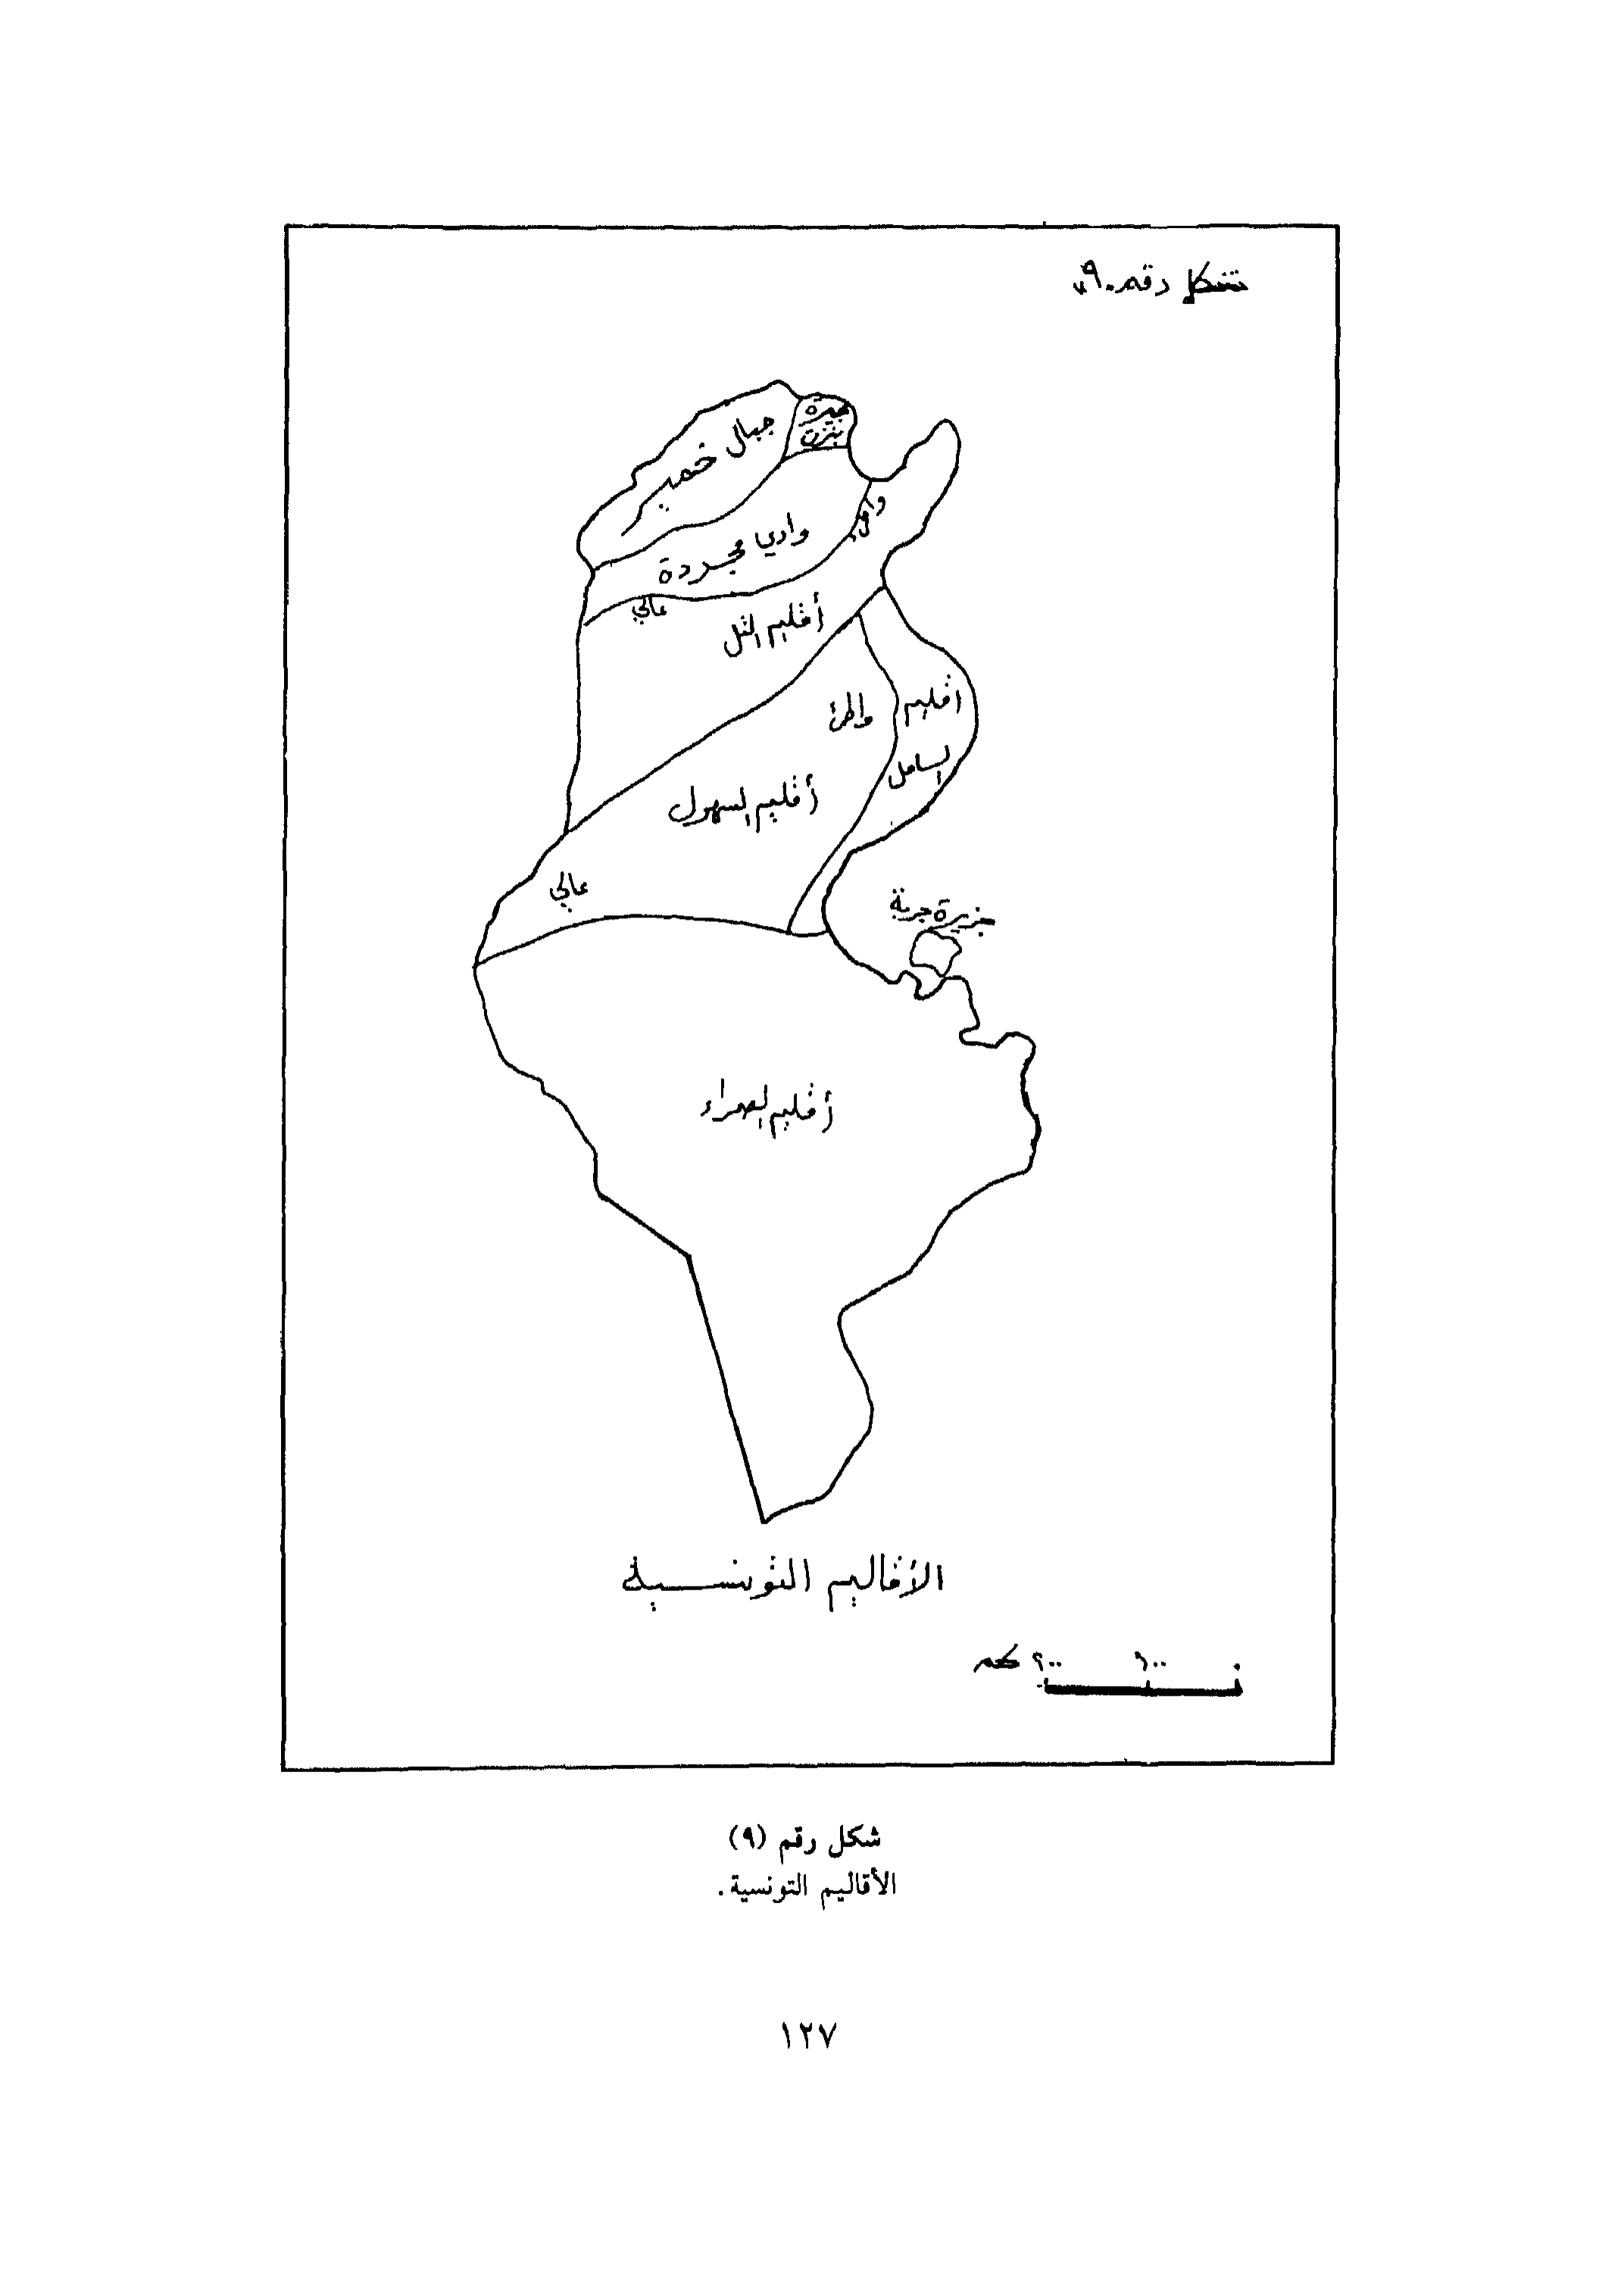 شكل رقم ٩
بحيرة
بنزرت
جبال خمير
وادي مجردة
عالي
أقليم التل
واطئ
أقليم
الساحل
أقليم السهول
عالي
جزيرة جربة
أقليم الصحراء
الأقاليم التونسية
٠ ١٠٠ ٢٠٠ كم
شكل رقم (٩)
الأقاليم التونسية.
١٢٧